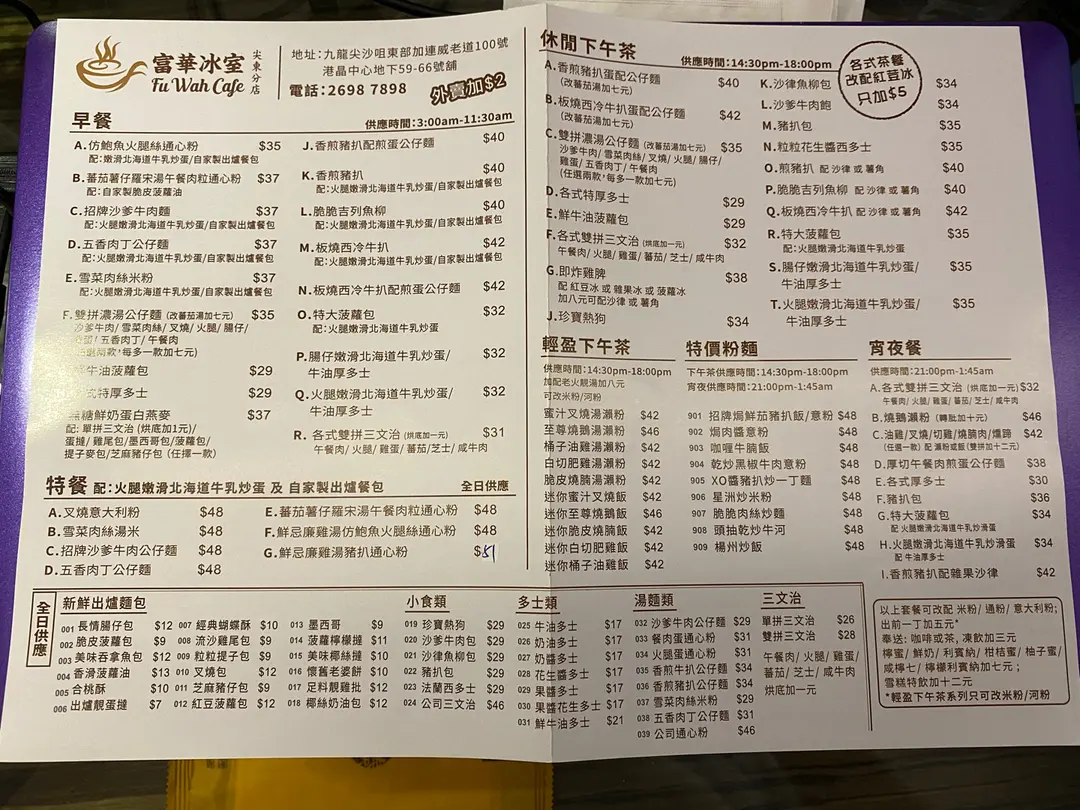 富華冰室
Fu Wah Cafe
尖東分店
地址：九龍尖沙咀東部加連威老道100號
港晶中心地下59-66號舖
電話：2698 7898
外賣加$2
早餐
供應時間：3:00am-11:30am
A.仿鮑魚火腿絲通心粉 $35
配：嫩滑北海道牛乳炒蛋/自家製出爐餐包
B.蕃茄薯仔羅宋湯午餐肉粒通心粉 $37
配：自家製脆皮菠蘿油
C.招牌沙爹牛肉麵 $37
配：火腿嫩滑北海道牛乳炒蛋/自家製出爐餐包
D.五香肉丁公仔麵 $37
配：火腿嫩滑北海道牛乳炒蛋/自家製出爐餐包
E.雪菜肉絲米粉 $37
配：火腿嫩滑北海道牛乳炒蛋/自家製出爐餐包
F.雙拼濃湯公仔麵（改蕃茄湯加七元） $35
沙爹牛肉/雪菜肉絲/叉燒/火腿/腸仔/
蛋/五香肉丁/午餐肉
任選兩款，每多一款加七元)
牛油菠蘿包 $29
式特厚多士 $29
糖鮮奶蛋白燕麥 $37
配：單拼三文治 (烘底加1元)/
蛋撻/雞尾包/墨西哥包/菠蘿包/
提子麥包/芝麻豬仔包（任擇一款）
J.香煎豬扒配煎蛋公仔麵 $40
K.香煎豬扒 $40
配：火腿嫩滑北海道牛乳炒蛋/自家製出爐餐包
L.脆脆吉列魚柳 $40
配：火腿嫩滑北海道牛乳炒蛋/自家製出爐餐包
M.板燒西冷牛扒 $42
配：火腿嫩滑北海道牛乳炒蛋/自家製出爐餐包
N.板燒西冷牛扒配煎蛋公仔麵 $42
O.特大菠蘿包 $32
配：火腿嫩滑北海道牛乳炒蛋
P.腸仔嫩滑北海道牛乳炒蛋/ $32
牛油厚多士
Q.火腿嫩滑北海道牛乳炒蛋/ $32
牛油厚多士
R. 各式雙拼三文治 (烘底加一元) $31
午餐肉/火腿/雞蛋/蕃茄/芝士/咸牛肉
特餐 配：火腿嫩滑北海道牛乳炒蛋 及 自家製出爐餐包 全日供應
A.叉燒意大利粉 $48
B.雪菜肉絲湯米 $48
C.招牌沙爹牛肉公仔麵 $48
D.五香肉丁公仔麵 $48
E.蕃茄薯仔羅宋湯午餐肉粒通心粉 $48
F.鮮忌廉雞湯仿鮑魚火腿絲通心粉 $48
G.鮮忌廉雞湯豬扒通心粉 $51
休閒下午茶
供應時間：14:30pm-18:00pm
各式茶餐
改配紅荳冰
只加$5
A.香煎豬扒蛋配公仔麵 $40
(改蕃茄湯加七元)
B.板燒西冷牛扒蛋配公仔麵 $42
(改蕃茄湯加七元)
C.雙拼濃湯公仔麵（改蕃茄湯加七元） $35
沙爹牛肉/雪菜肉絲/叉燒/火腿/腸仔/
雞蛋/五香肉丁/午餐肉
(任選兩款，每多一款加七元)
D.各式特厚多士 $29
E.鮮牛油菠蘿包 $29
F.各式雙拼三文治 (烘底加一元) $32
午餐肉/火腿/雞蛋/蕃茄/芝士/咸牛肉
G.即炸雞脾 $38
配 紅荳冰 或 雜果冰 或 菠蘿冰
加八元可配沙律 或 薯角
J.珍寶熱狗 $34
K.沙律魚柳包 $34
L.沙爹牛肉飽 $34
M.豬扒包 $35
N.粒粒花生醬西多士 $35
O.煎豬扒 配 沙律 或 薯角 $40
P.脆脆吉列魚柳 配 沙律 或 薯角 $40
Q.板燒西冷牛扒 配 沙律 或 薯角 $42
R.特大菠蘿包 $35
配：火腿嫩滑北海道牛乳炒蛋
S.腸仔嫩滑北海道牛乳炒蛋/ $35
牛油厚多士
T.火腿嫩滑北海道牛乳炒蛋/ $35
牛油厚多士
輕盈下午茶
供應時間：14:30pm-18:00pm
加配老火靚湯加八元
可改米粉/河粉
蜜汁叉燒湯瀨粉 $42
至尊燒鵝湯瀨粉 $46
桶子油雞湯瀨粉 $42
白切肥雞湯瀨粉 $42
脆皮燒腩湯瀨粉 $42
迷你蜜汁叉燒飯 $42
迷你至尊燒鵝飯 $46
迷你脆皮燒腩飯 $42
迷你白切肥雞飯 $42
迷你桶子油雞飯 $42
特價粉麵
下午茶供應時間：14:30pm-18:00pm
宵夜供應時間：21:00pm-1:45am
901 招牌焗鮮茄豬扒飯/意粉 $48
902 焗肉醬意粉 $48
903 咖喱牛腩飯 $48
904 乾炒黑椒牛肉意粉 $48
905 XO醬豬扒炒一丁麵 $48
906 星洲炒米粉 $48
907 脆脆肉絲炒麵 $48
908 頭抽乾炒牛河 $48
909 楊州炒飯 $48
宵夜餐
供應時間：21:00pm-1:45am
A.各式雙拼三文治（烘底加一元） $32
午餐肉/火腿/雞蛋/蕃茄/芝士/咸牛肉
B.燒鵝瀨粉（轉髀加十元） $46
C.油雞/叉燒/切雞/燒腩肉/燻蹄 $42
(任選一款) 配 瀨粉或飯(雙拼加十二元)
D.厚切午餐肉煎蛋公仔麵 $38
E.各式厚多士 $30
F.豬扒包 $36
G.特大菠蘿包 $34
配 火腿嫩滑北海道牛乳炒滑蛋
H.火腿嫩滑北海道牛乳炒滑蛋 $34
配 牛油厚多士
I.香煎豬扒配雜果沙律 $42
全日供應
新鮮出爐麵包
001 長情腸仔包 $12
002 脆皮菠蘿包 $9
003 美味吞拿魚包 $12
004 香滑菠蘿油 $13
005 合桃酥 $10
006 出爐靚蛋撻 $7
007 經典蝴蝶酥 $10
008 流沙雞尾包 $9
009 粒粒提子包 $9
010 叉燒包 $12
011 芝麻豬仔包 $9
012 紅荳菠蘿包 $12
013 墨西哥 $9
014 菠蘿檸檬撻 $11
015 美味椰絲撻 $10
016 懷舊老婆餅 $10
017 足料靚雞批 $12
018 椰絲奶油包 $12
小食類
019 珍寶熱狗 $29
020 沙爹牛肉包 $29
021 沙律魚柳包 $29
022 豬扒包 $29
023 法蘭西多士 $29
024 公司三文治 $46
多士類
025 牛油多士 $17
026 奶油多士 $17
027 奶醬多士 $17
028 花生醬多士 $17
029 果醬多士 $17
030 果醬花生多士 $17
031 鮮牛油多士 $21
湯麵類
032 沙爹牛肉公仔麵 $29
033 餐肉蛋通心粉 $31
034 火腿蛋通心粉 $31
035 香煎牛扒公仔麵 $34
036 香煎豬扒公仔麵 $34
037 雪菜肉絲米粉 $29
038 五香肉丁公仔麵 $31
039 公司通心粉 $46
三文治
單拼三文治 $26
雙拼三文治 $28
午餐肉/火腿/雞蛋/
蕃茄/芝士/咸牛肉
烘底加一元
以上套餐可改配 米粉/通粉/意大利粉；
出前一丁加五元*
奉送：咖啡或茶，凍飲加三元
檸蜜/鮮奶/利賓納/柑桔蜜/柚子蜜/
咸檸七/檸檬利賓納加七元；
雪糕特飲加十二元
*輕盈下午茶系列只可改米粉/河粉